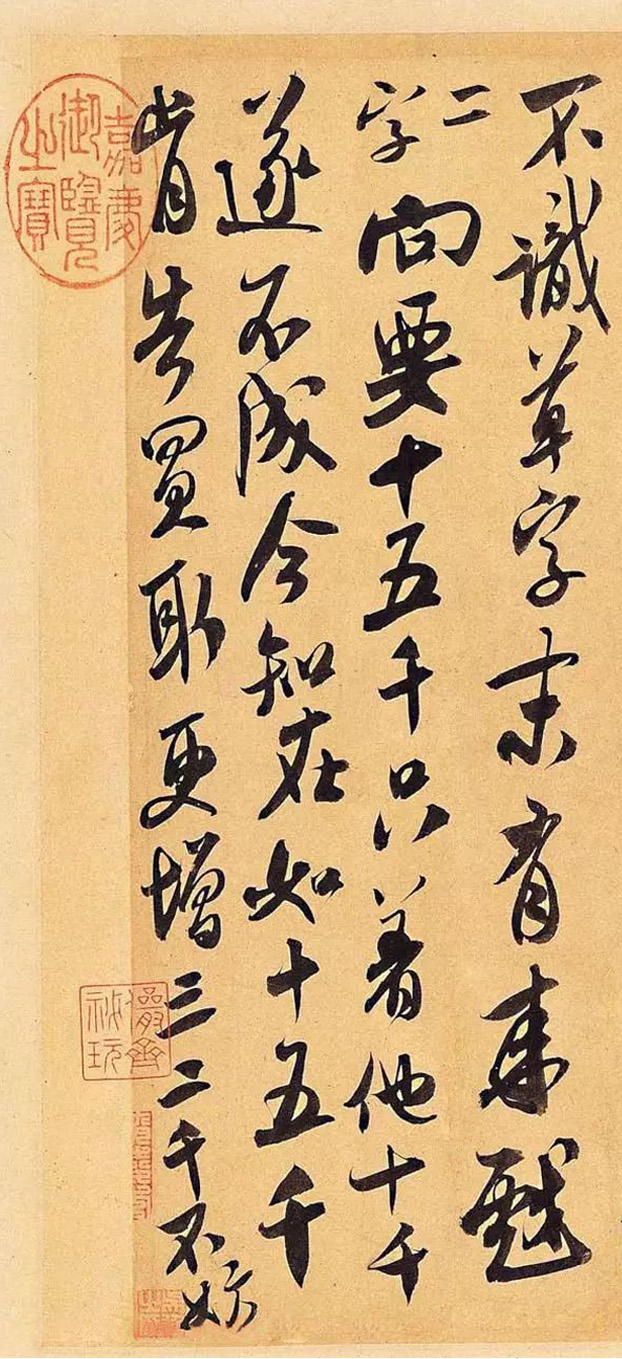 不識草字末有来戩
二字向要十五千只着他十千
遂不成今知在如十五千
肯告買取更增三二千不妨
嘉慶御覽之寶
儼齋祕玩